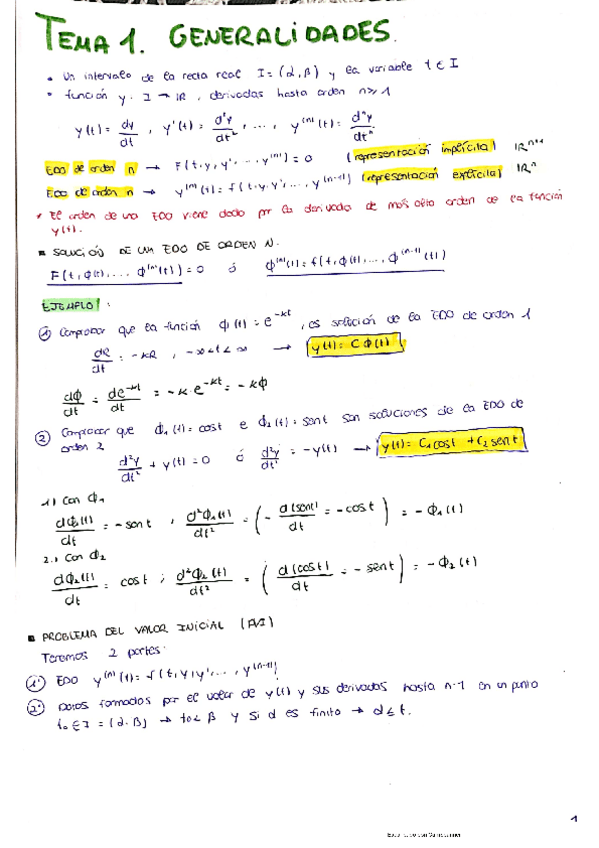 TEMA 1. GENERALIDADES.
• Un intervalo de la recta real I = (α, β) y la variable t ∈ I
• función y: I → IR, derivadas hasta orden n ≥ 1
y(t) = dy/dt , y'(t) = d²y/dt² , ..., y⁽ⁿ⁾(t) = dⁿy/dtⁿ
EDO de orden n → F(t, y, y', ..., y⁽ⁿ⁾) = 0 (representación implícita) IRⁿ⁺²
EDO de orden n → y⁽ⁿ⁾(t) = f(t, y, y', ..., y⁽ⁿ⁻¹⁾) (representación explícita) IRⁿ
* El orden de una EDO viene dado por la derivada de más alto orden de la función
y(t).
▪ SOLUCIÓN DE UNA EDO DE ORDEN N.
F(t, ϕ(t), ..., ϕ⁽ⁿ⁾(t)) = 0 ó ϕ⁽ⁿ⁾(t) = f(t, ϕ(t), ..., ϕ⁽ⁿ⁻¹⁾(t))
EJEMPLO!:
① Comprobar que la función ϕ(t) = e⁻ᵏᵗ, es solución de la EDO de orden 1
dR/dt = -kR , -∞ < t < ∞ → y(t) = C ϕ(t)
dϕ/dt = de⁻ᵏᵗ/dt = -k · e⁻ᵏᵗ = -kϕ
② Comprobar que ϕ₁(t) = cost e ϕ₂(t) = sent son soluciones de la EDO de
orden 2
d²y/dt² + y(t) = 0 ó d²y/dt² = -y(t) → y(t) = C₁cost + C₂sent
1.) Con ϕ₁
dϕ₁(t)/dt = -sent ; d²ϕ₁(t)/dt² = (- d(sent)/dt = -cost) = -ϕ₁(t)
2.) Con ϕ₂
dϕ₂(t)/dt = cost ; d²ϕ₂(t)/dt² = (d(cost)/dt = -sent) = -ϕ₂(t)
▪ PROBLEMA DEL VALOR INICIAL (PVI)
Tenemos 2 partes:
①ª EDO y⁽ⁿ⁾(t) = f(t, y, y', ..., y⁽ⁿ⁻¹⁾)
②ª Datos formados por el valor de y(t) y sus derivadas hasta n-1 en un punto
t₀ ∈ I = (α, β) → t₀ < β y si α es finito → α ≤ t.
1